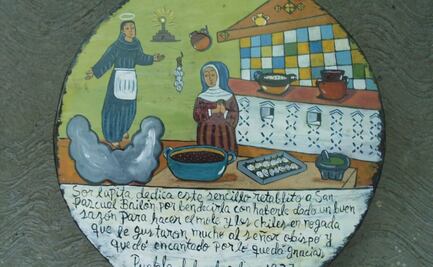 Sor lupita dedica este sencillo retablito a San
Pascual Bailón por bendecirla con haberle dado un buen
sazon Para hacer el mole y los chiles en nogada
que le gustaron mucho al señor obispo y
quedó encantado por lo que da gracias
Puebla